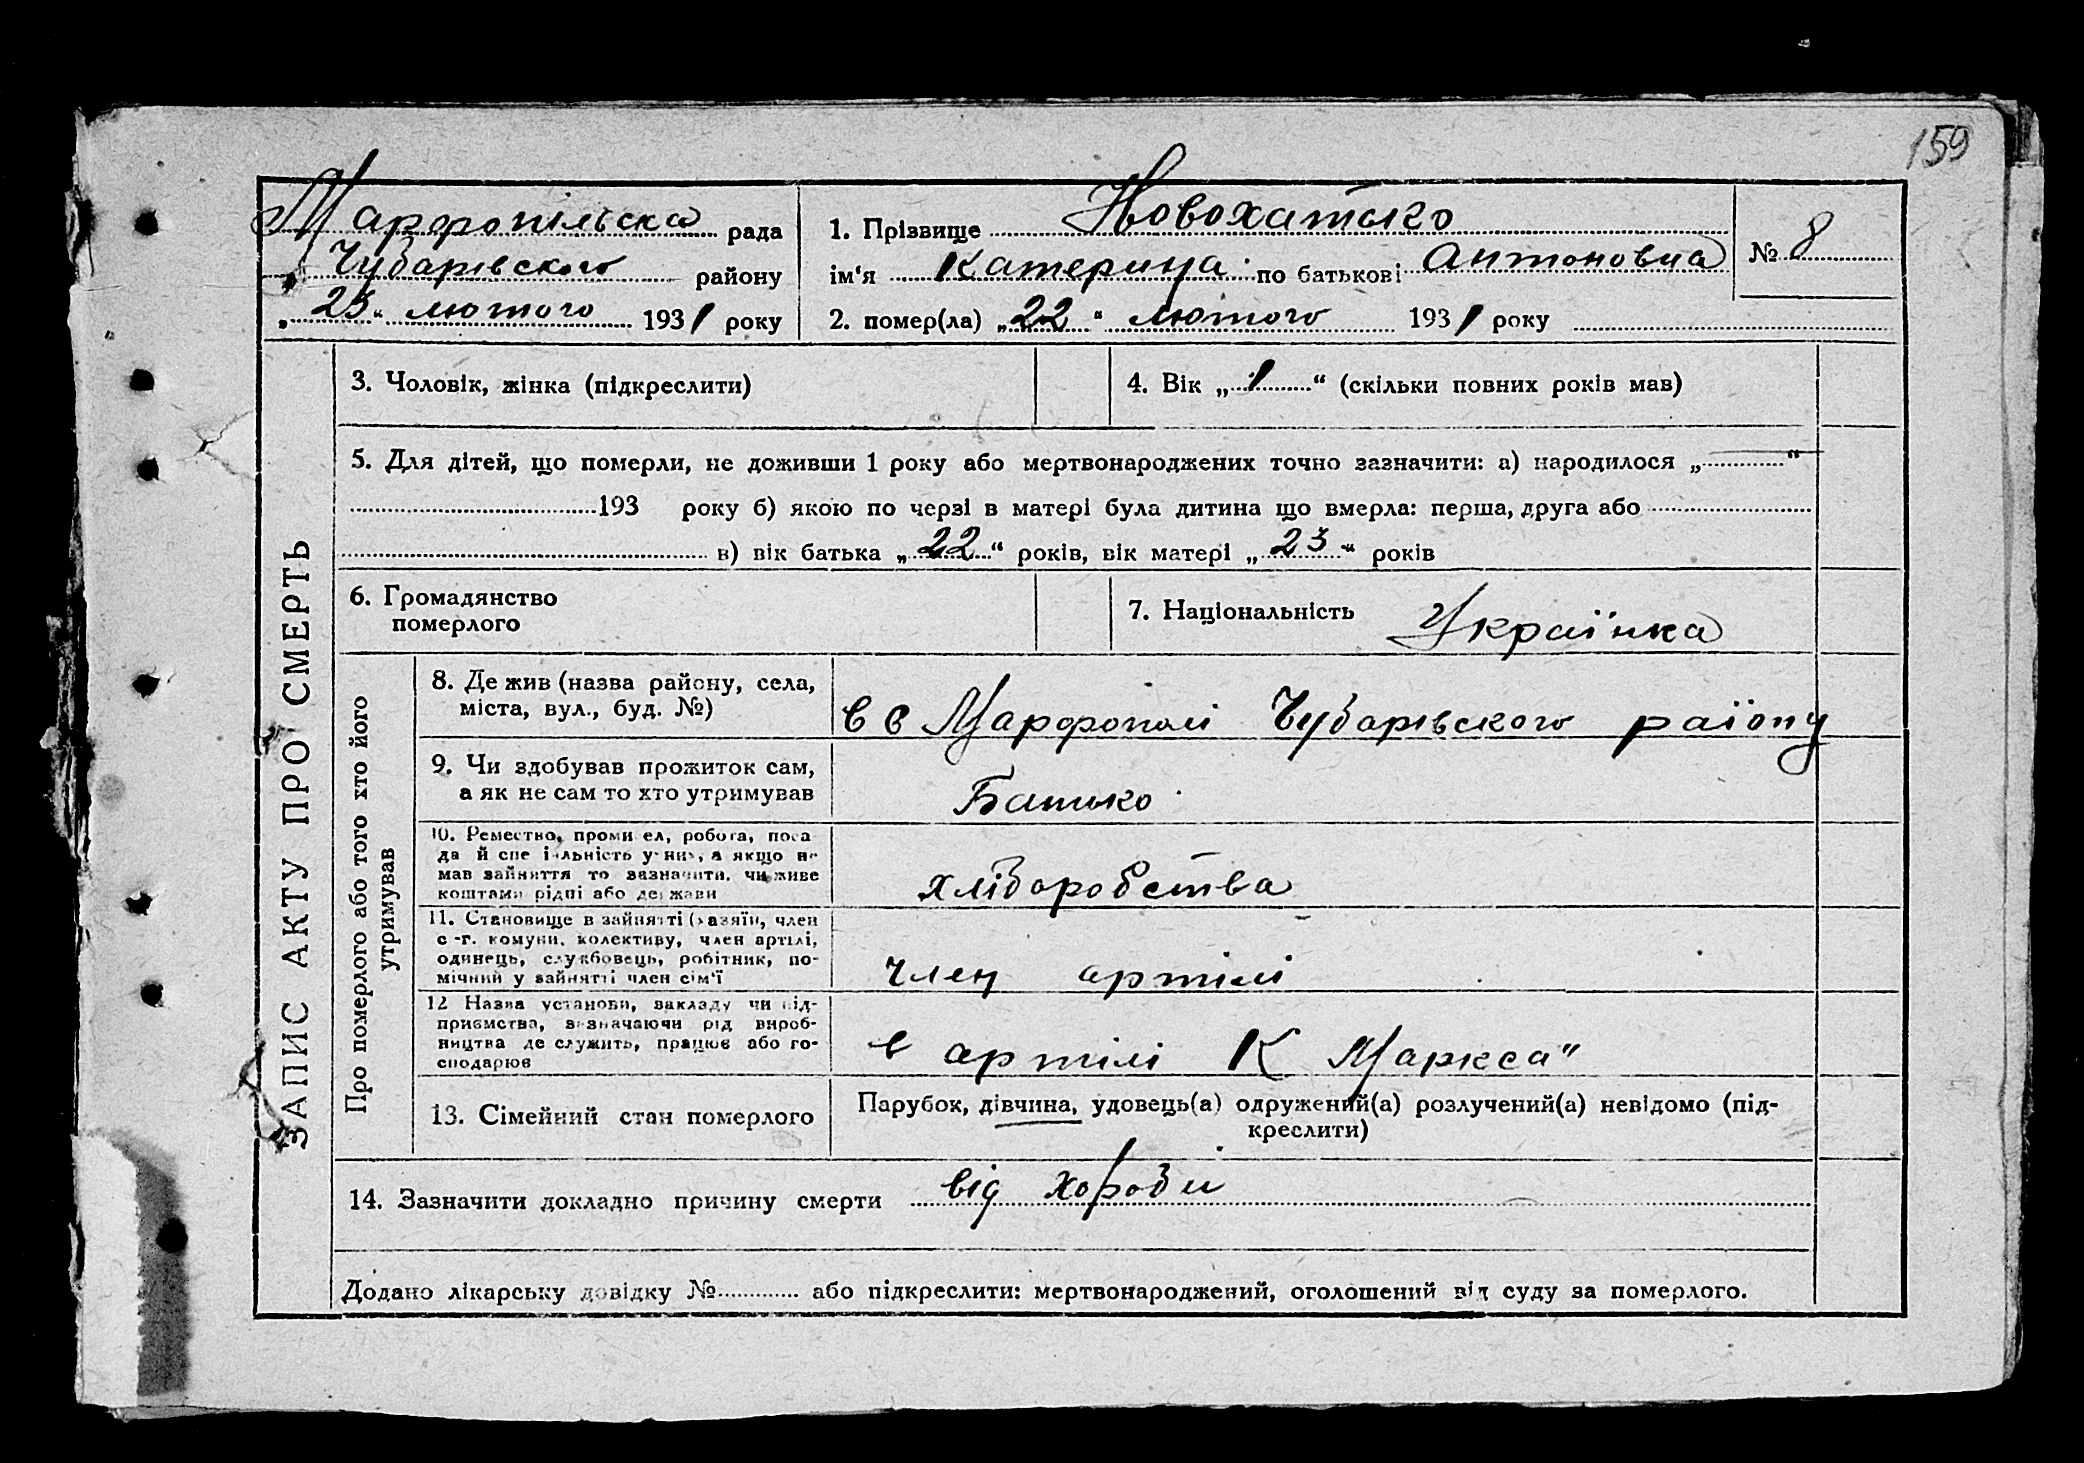 159
Марфопільска рада
Чубарівского району
„23“ лютого 1931 року
1. Прізвище Новохатсько
ім‘я Катерина по батькові Антоновна
2. помер(ла) „22“ лютого 1931 року
№ 8
ЗАПИС АКТУ ПРО СМЕРТЬ
3. Чоловік, жінка (підкреслити)
4. Вік „1“ (скільки повних років мав)
5. Для дітей, що померли, не доживши 1 року або мертвонароджених точно зазначити: а) народилося „—“
193 року б) якою по черзі в матері була дитина що вмерла: перша, друга або
в) вік батька „22“ років, вік матері „23“ років
6. Громадянство
померлого
7. Національність Українка
Про померлого або того хто його
утримував
8. Де жив (назва району, села,
міста, вул., буд. №)
в с Марфополі Чубарівского раїону
9. Чи здобував прожиток сам,
а як не сам то хто утримував
Батько
10. Ремество, промисел, робота, поса
да й спеціяльність у них, а якщо не
мав зайняття то зазначити, чи живе
коштами рідні або держави
хліборобства
11. Становище в зайнятті (хазяїн, член
с-г. комуни, колективу, член артілі,
одинець, службовець, робітник, по-
мічний у зайнятті член сім'ї
член артілі
12 Назва установи, закладу чи під-
приємства, зазначаючи рід вироб-
ництва де служить, працює або го-
сподарює
в артілі К Маркса"
13. Сімейний стан померлого
Парубок, дівчина, удовець(а) одружений(а) розлучений(а) невідомо (під-
креслити)
14. Зазначити докладно причину смерти від хороби
Додано лікарську довідку № або підкреслити: мертвонароджений, оголошений від суду за померлого.